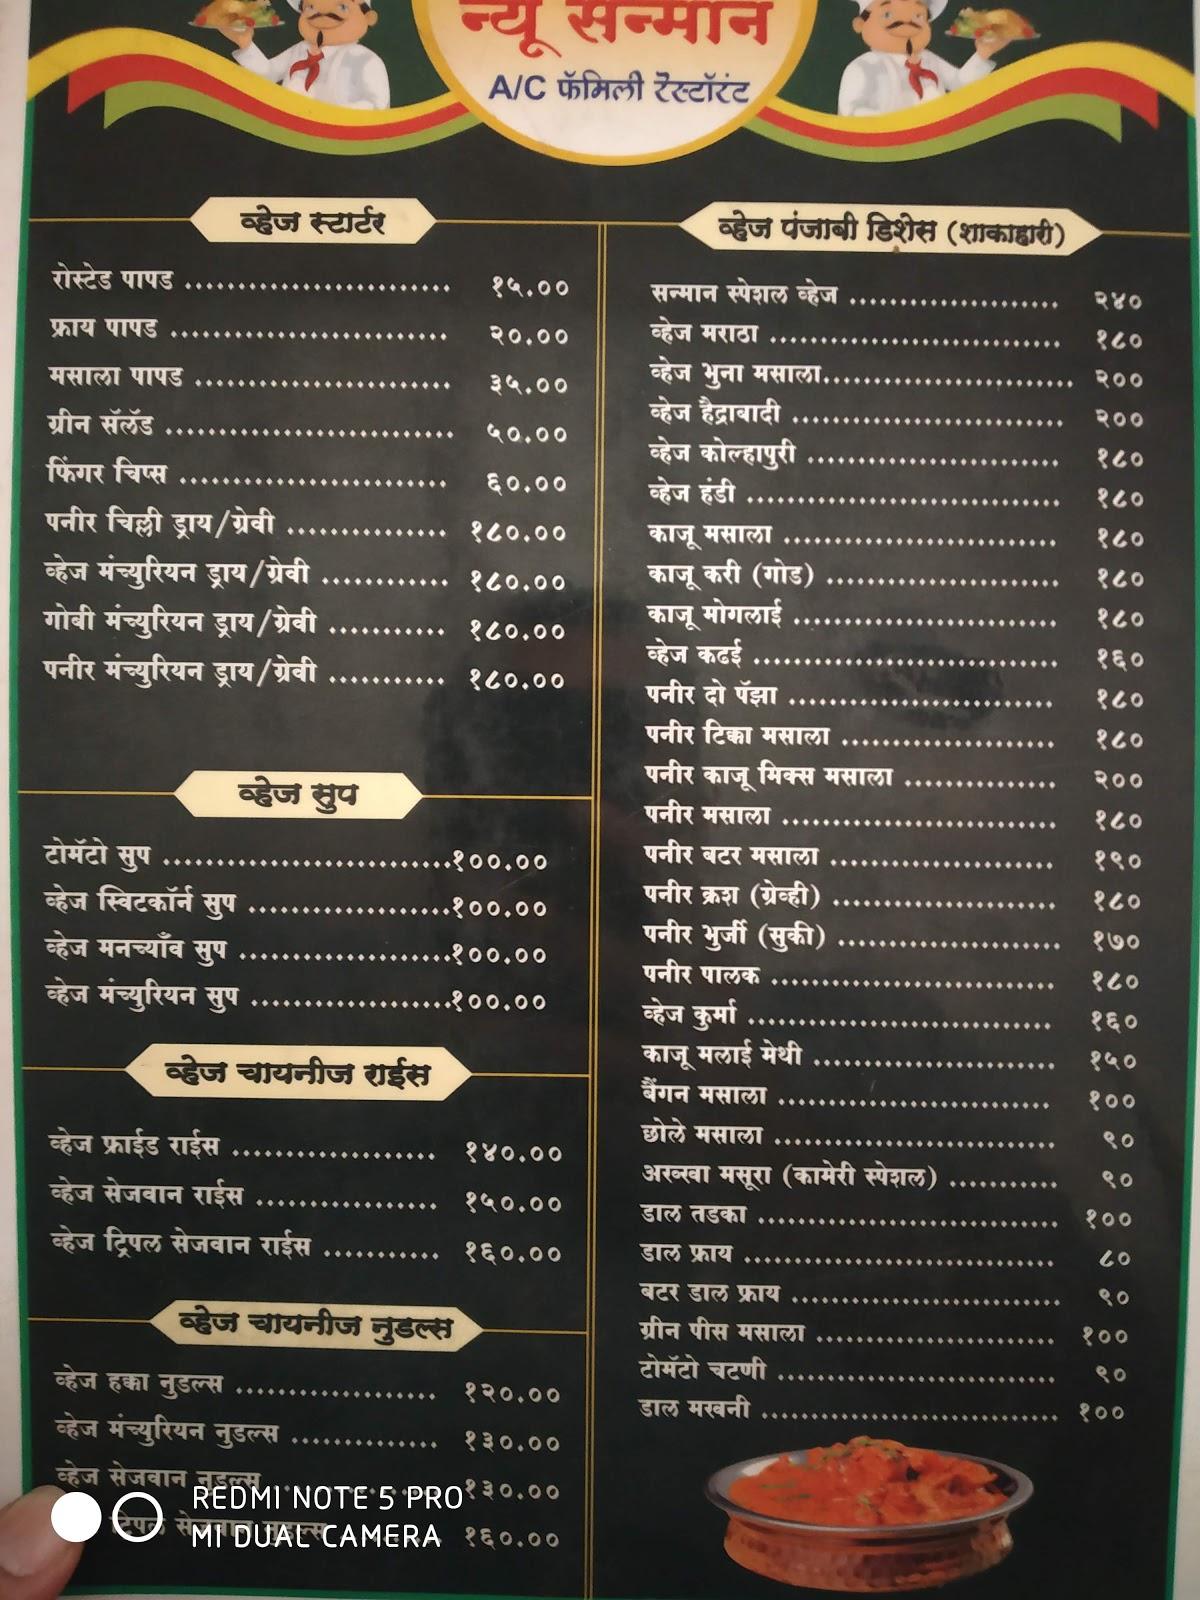 न्यू सन्मान
A/C फॅमिली रेस्टॉरंट
व्हेज स्टार्टर
रोस्टेड पापड .......................... १५.००
फ्राय पापड ........................... २०.००
मसाला पापड ......................... ३५.००
ग्रीन सॅलॅड ............................ ५०.००
फिंगर चिप्स .......................... ६०.००
पनीर चिल्ली ड्राय/ग्रेवी ................ १८०.००
व्हेज मंच्युरियन ड्राय/ग्रेवी ............ १८०.००
गोबी मंच्युरियन ड्राय/ग्रेवी ........... १८०.००
पनीर मंच्युरियन ड्राय/ग्रेवी ........... १८०.००
व्हेज सुप
टोमॅटो सुप ............................१००.००
व्हेज स्विटकॉर्न सुप ....................१००.००
व्हेज मनच्याँव सुप .....................१००.००
व्हेज मंच्युरियन सुप ....................१००.००
व्हेज चायनीज राईस
व्हेज फ्राईड राईस .................... १४०.००
व्हेज सेजवान राईस .................. १५०.००
व्हेज ट्रिपल सेजवान राईस ........... १६०.००
व्हेज चायनीज नुडल्स
व्हेज हक्का नुडल्स .................... १२०.००
व्हेज मंच्युरियन नुडल्स .............. १३०.००
व्हेज सेजवान नुडल्स ................ १३०.००
ट्रिपल सेजवान नुडल्स .......... १६०.००
व्हेज पंजाबी डिशेस (शाकाहारी)
सन्मान स्पेशल व्हेज ..................... २४०
व्हेज मराठा ............................. १८०
व्हेज भुना मसाला......................... २००
व्हेज हैद्राबादी ........................... २००
व्हेज कोल्हापुरी ......................... १८०
व्हेज हंडी ............................... १८०
काजू मसाला ........................... १८०
काजू करी (गोड) ....................... १८०
काजू मोगलाई .......................... १८०
व्हेज कढई .............................. १६०
पनीर दो पॅझा .......................... १८०
पनीर टिक्का मसाला ..................... १८०
पनीर काजू मिक्स मसाला ............... २००
पनीर मसाला ........................... १८०
पनीर बटर मसाला ...................... १९०
पनीर क्रश (ग्रेव्ही) ...................... १८०
पनीर भुर्जी (सुकी) ...................... १७०
पनीर पालक ............................ १८०
व्हेज कुर्मा .............................. १६०
काजू मलाई मेथी ....................... १५०
बैंगन मसाला ........................... १००
छोले मसाला ............................ ९०
अख्खा मसूरा (कामेरी स्पेशल) ........... ९०
डाल तडका .............................. १००
डाल फ्राय ............................... ८०
बटर डाल फ्राय .......................... ९०
ग्रीन पीस मसाला ........................ १००
टोमॅटो चटणी ............................ ९०
डाल मखनी .............................. १००
REDMI NOTE 5 PRO
MI DUAL CAMERA